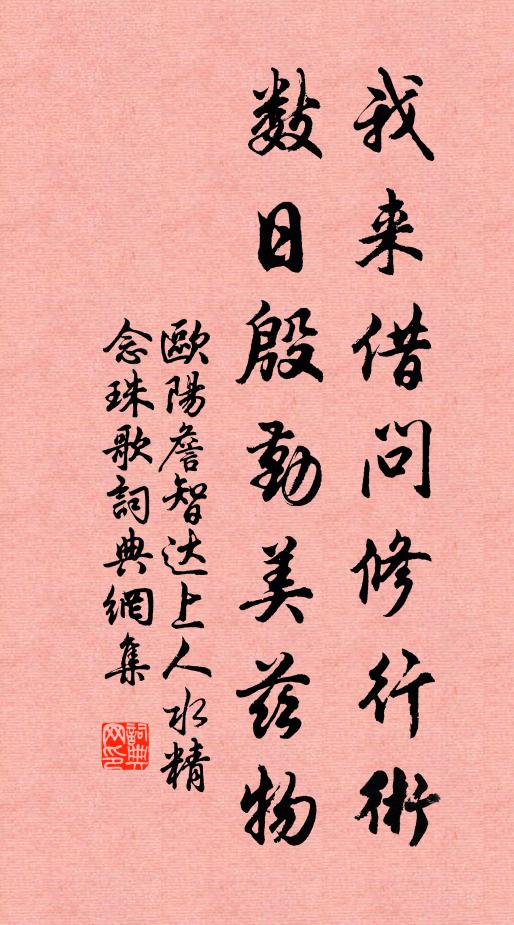 我来借问修行術
数日殷勤美茲物
歐陽詹智达上人水精
念珠歌詞典網集
詞典
网印